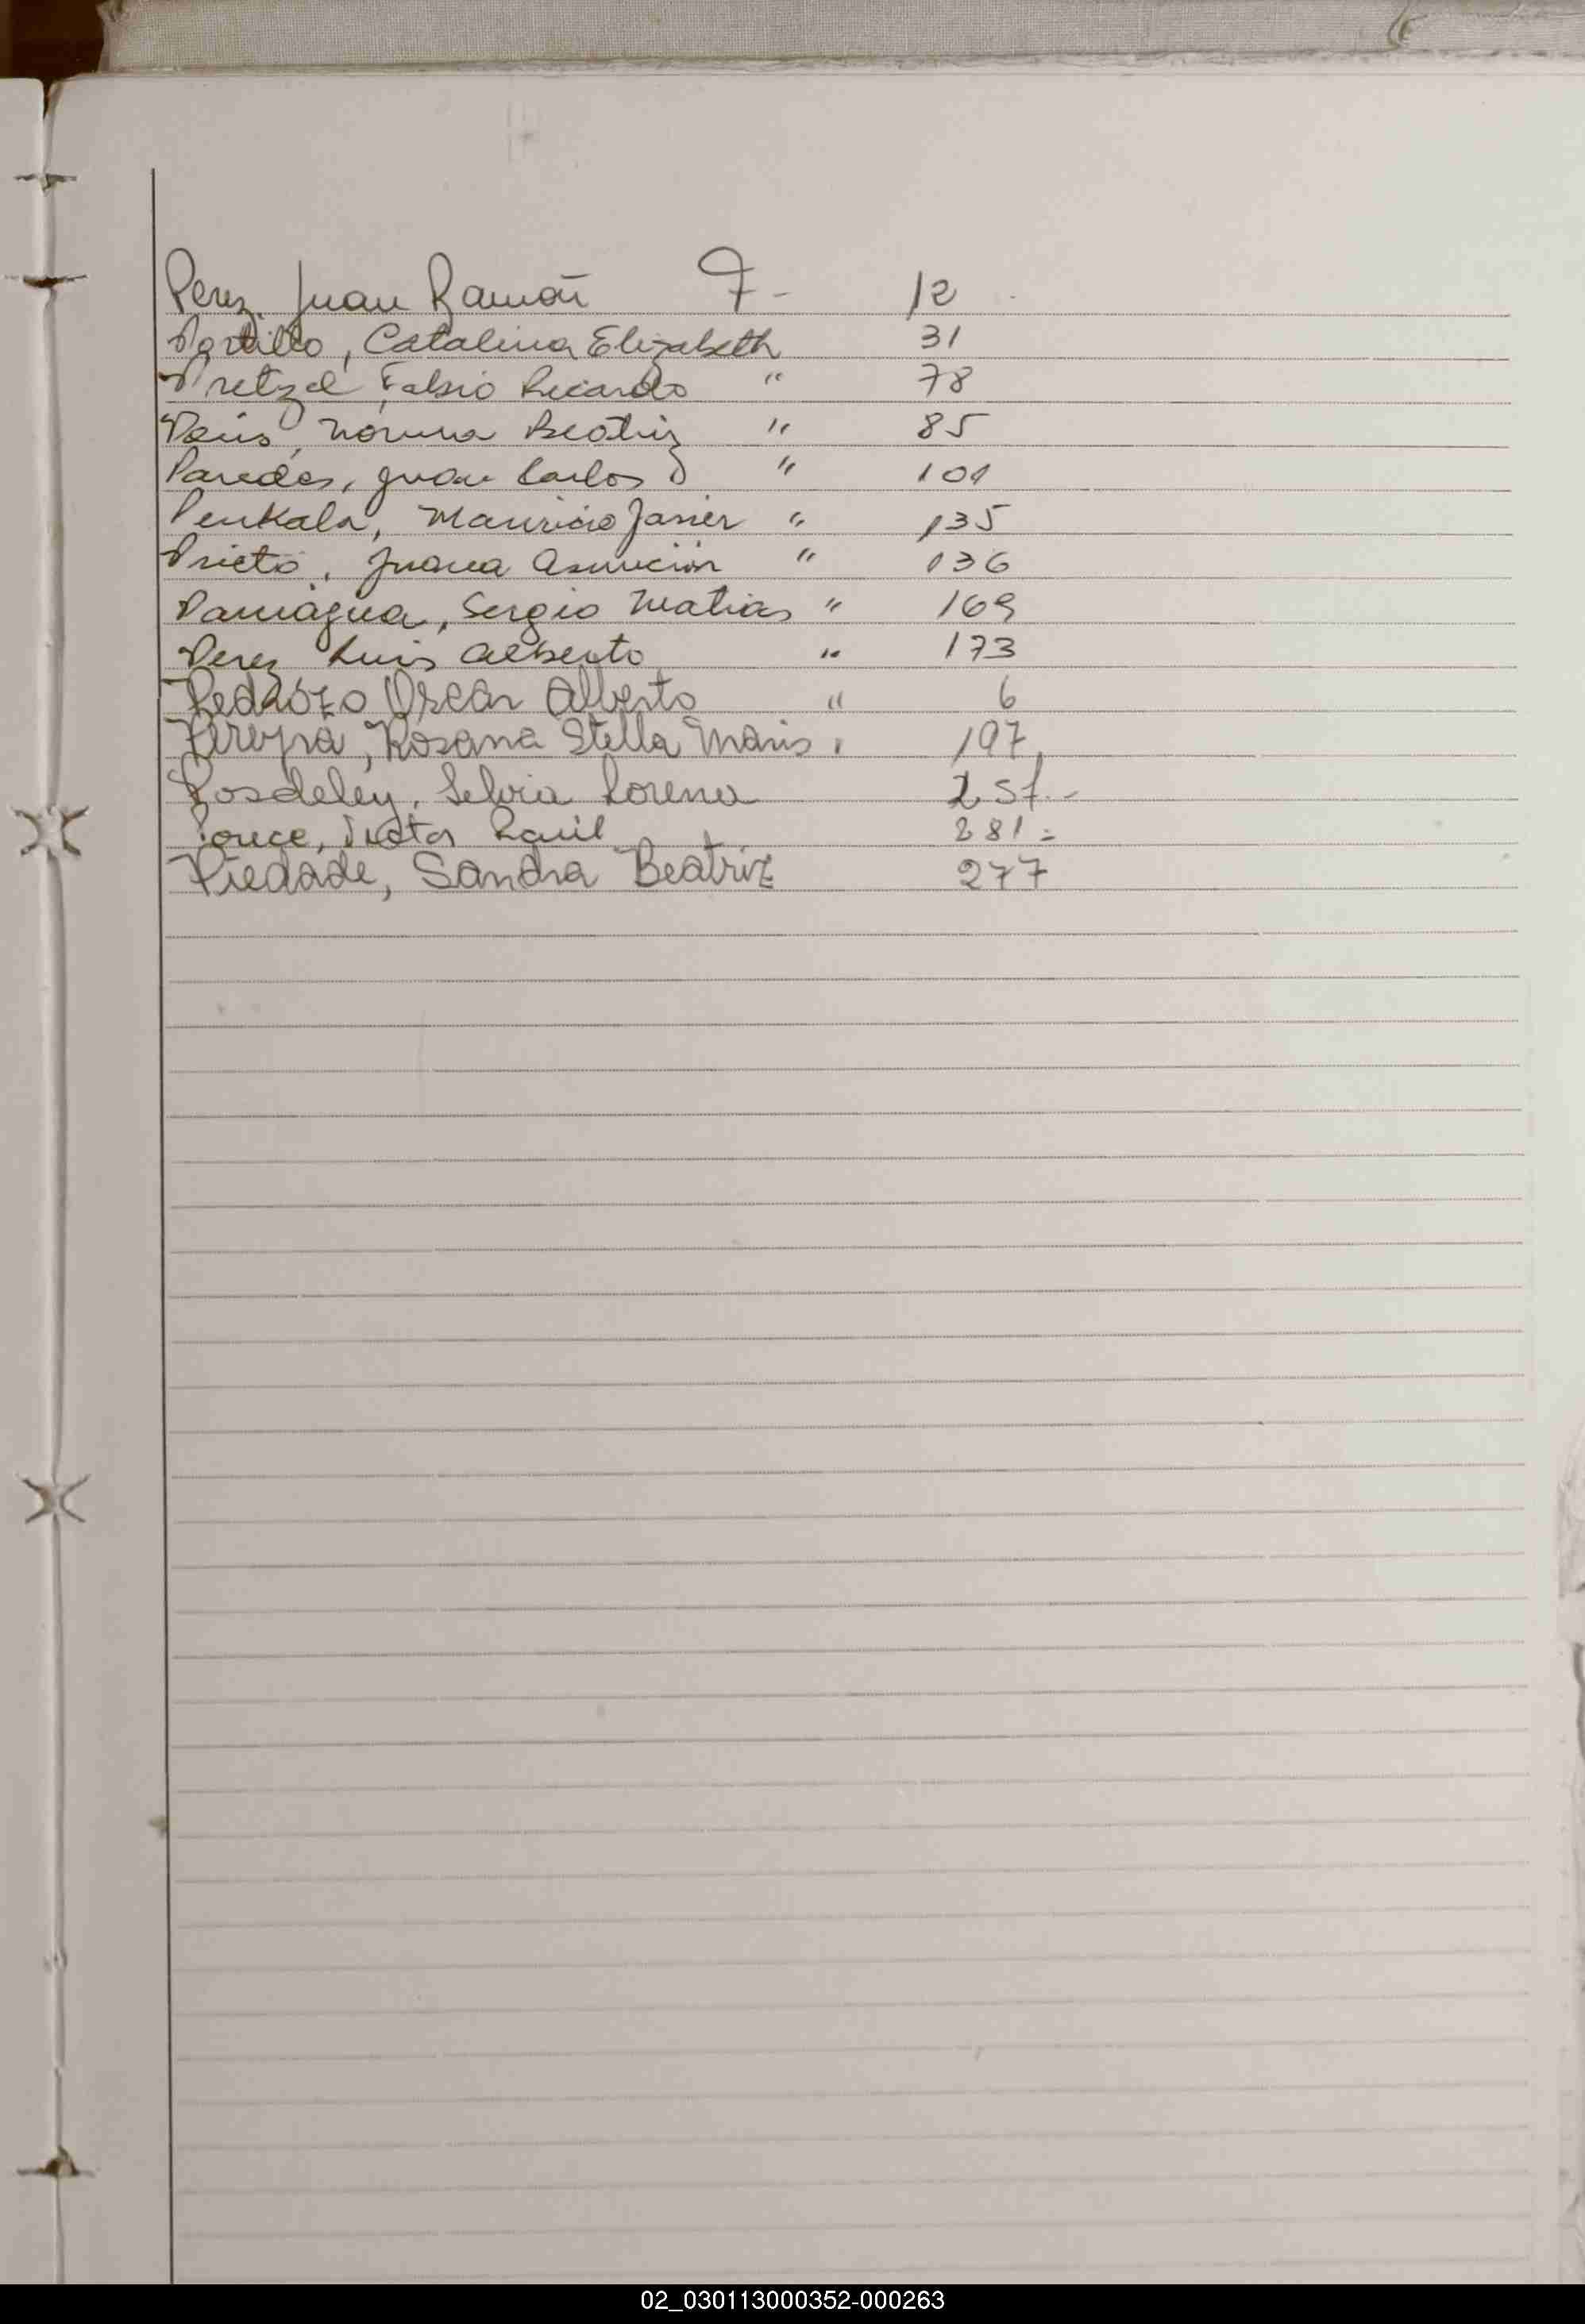 Perez, Juan Ramón F- 12
Portillo, Catalina Elizabeth 31
Pretzel, Fabio Ricardo " 78
Norma Beatriz " 85
Paredes, Juan Carlos " 101
Penkala, Mauricio Javier " 135
Prieto, Juana Asunción " 136
Paniagua, Sergio Matias " 169
Perez Luis Alberto " 173
Pedrozo Oscar Alberto " 6
Pereyra, Rosana Stella Maris " 197
Posdeley, Silvia Lorena 257.-
Ponce, Victor Raúl 281=
Piedade, Sandra Beatriz 277
02_030113000352-000263